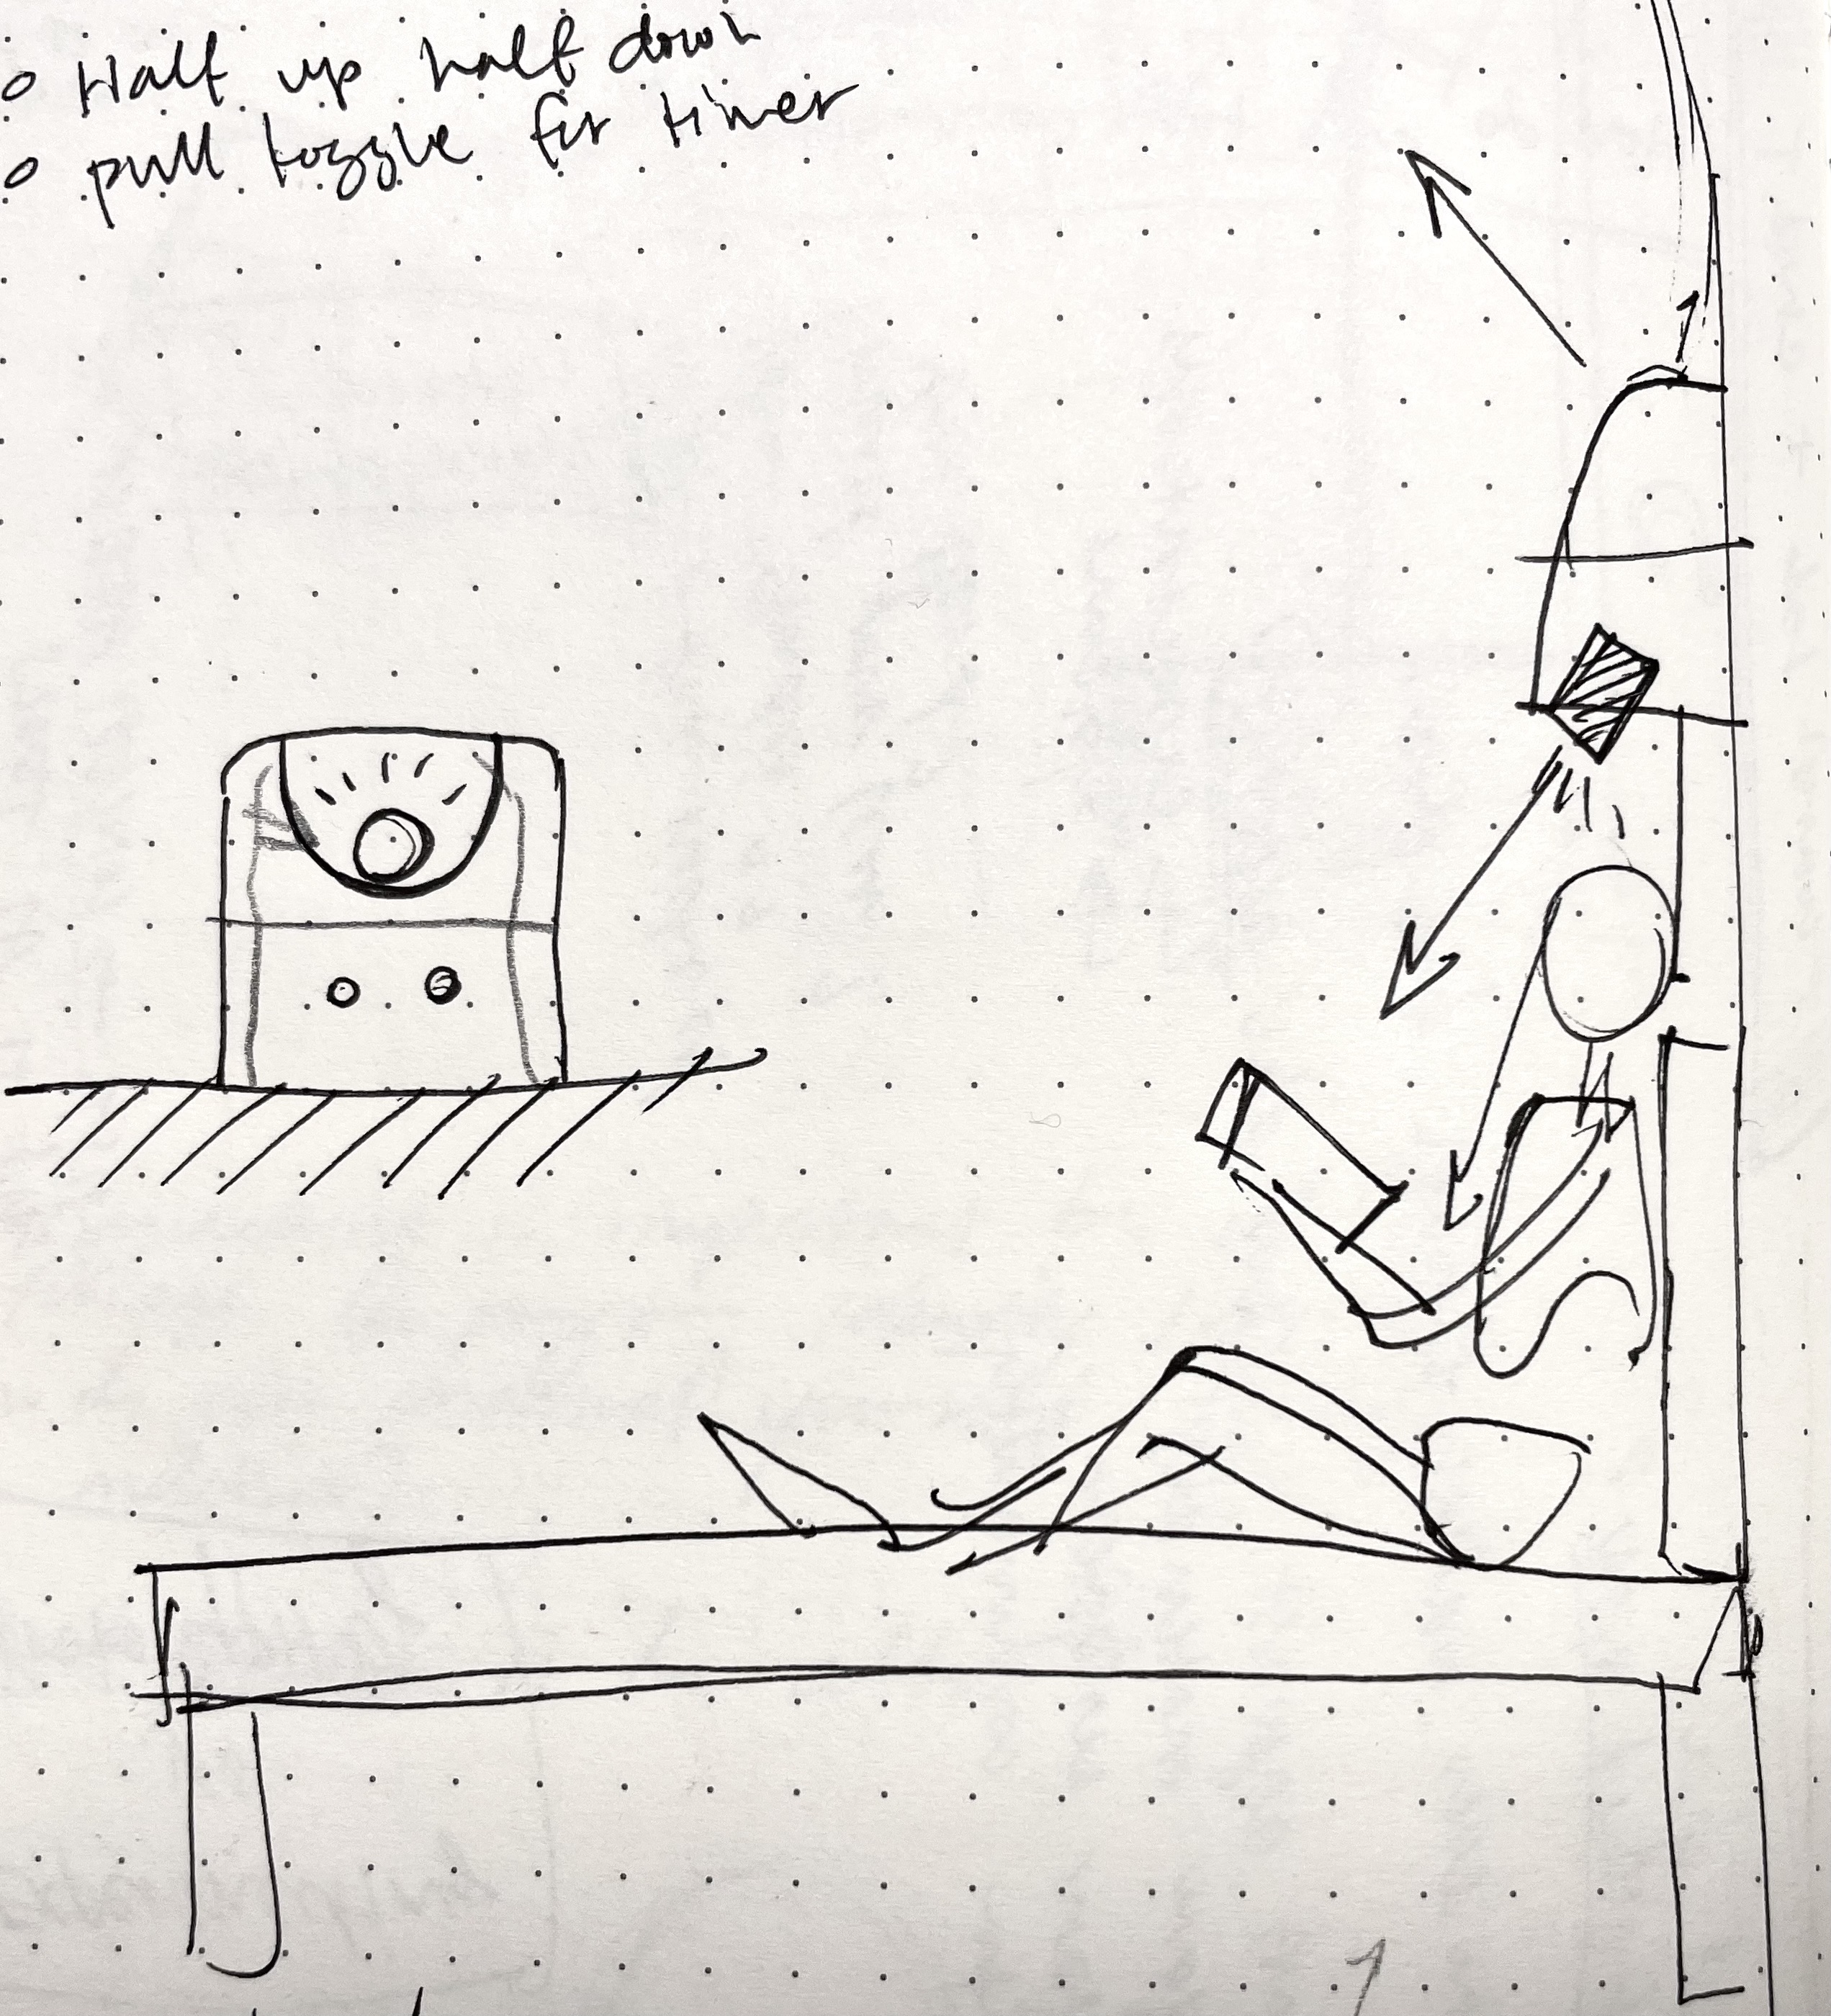 o Half up half down
o pull toggle for timer